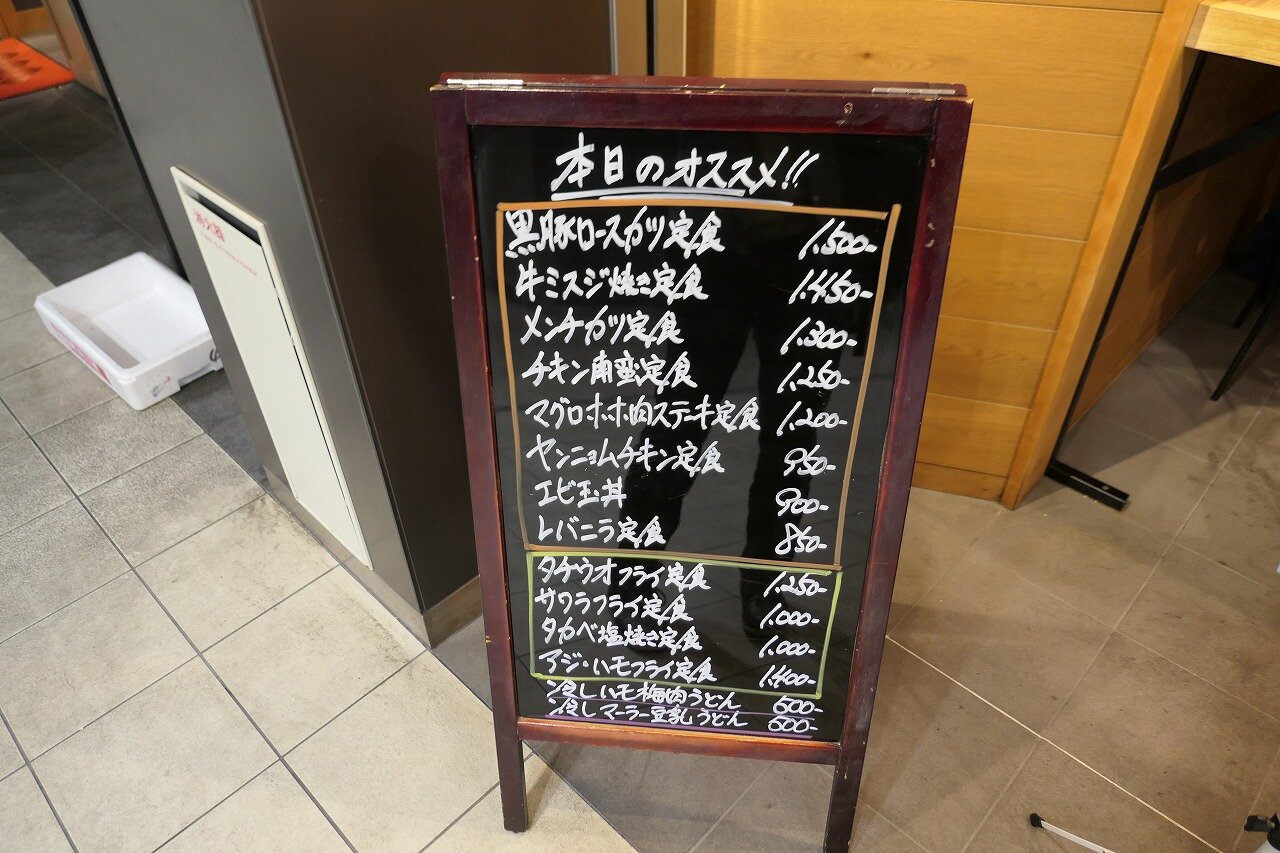 本日のオススメ!!
黒豚ロースカツ定食 1.500-
牛ミスジ焼き定食 1.450-
メンチカツ定食 1.300-
チキン南蛮定食 1.250-
マグロホホ肉ステーキ定食 1.200-
ヤンニョムチキン定食 950-
エビ玉丼 900-
レバニラ定食 850-
タチウオフライ定食 1.250-
サワラフライ定食 1.000-
タカベ塩焼き定食 1.000-
アジ・ハモフライ定食 1.400-
冷しハモ梅肉うどん 600-
冷しマーラー豆乳うどん 600-
消火器